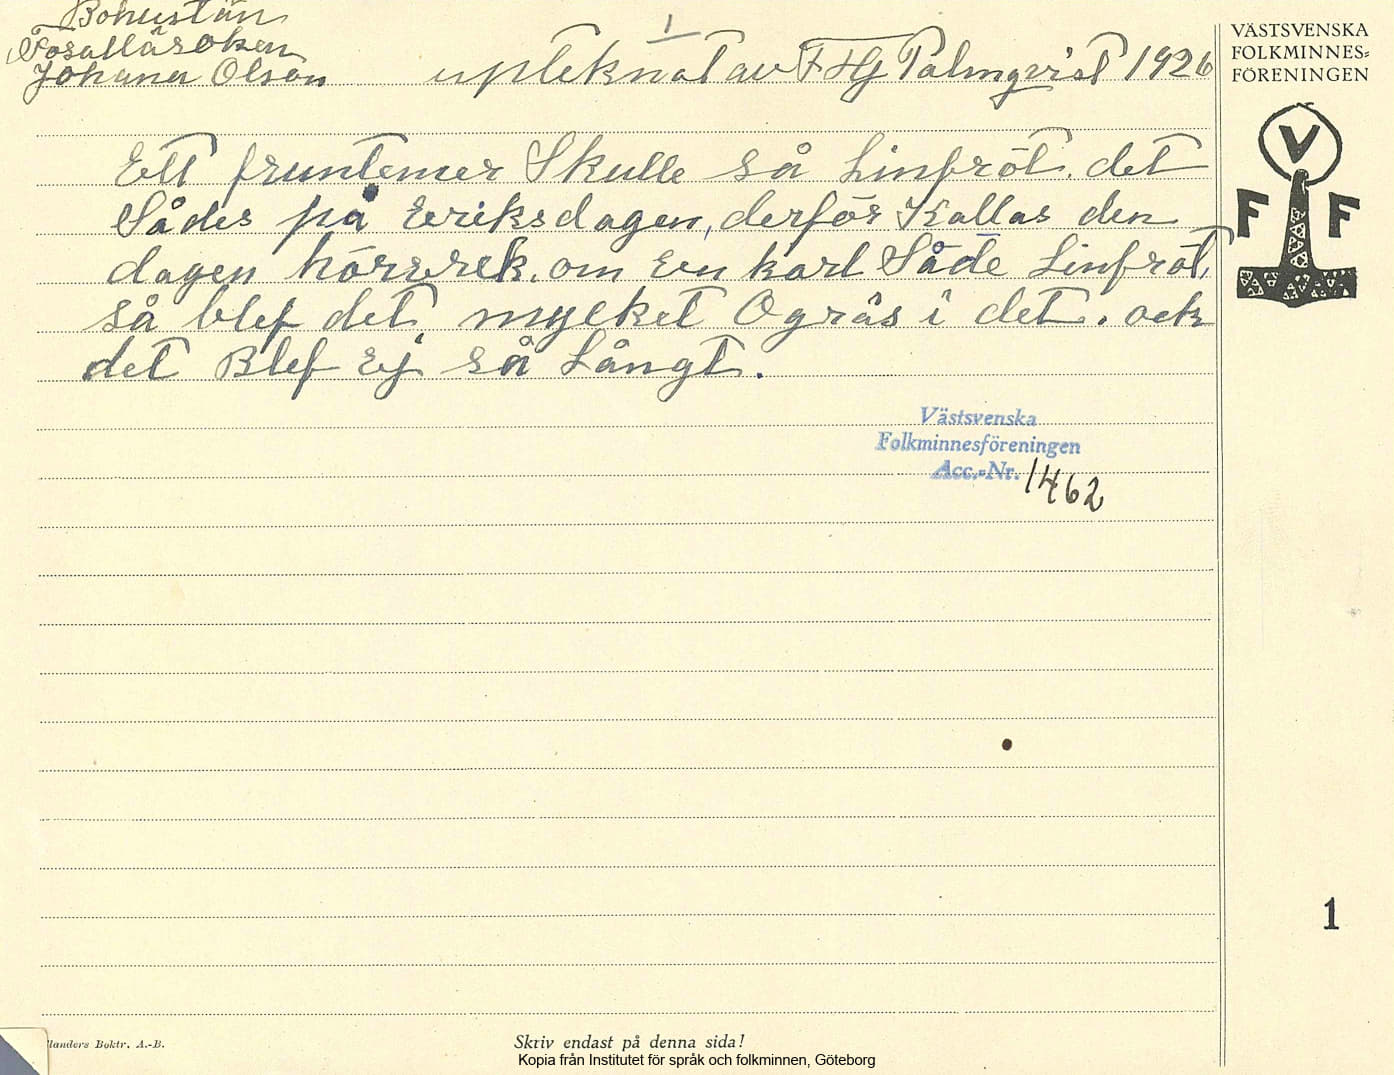 Bohuslän
Fossalläroken
Johana Olson
1
upteknat av F Hj Palmqvist 1926
VÄSTSVENSKA
FOLKMINNES-
FÖRENINGEN
V
F F
Ett fruntemer Skulle så Linfröt. det
Sådes på Eriksdagen, derför Kallas den
dagen hörerek. om en karl Såde Linfröt,
så blef det mycket Ogräs i det. ock
det Blef Ej så Långt.
Västsvenska
Folkminnesföreningen
Acc.-Nr. 1462
1
landers Boktr. A.-B.
Skriv endast på denna sida!
Kopia från Institutet för språk och folkminnen, Göteborg